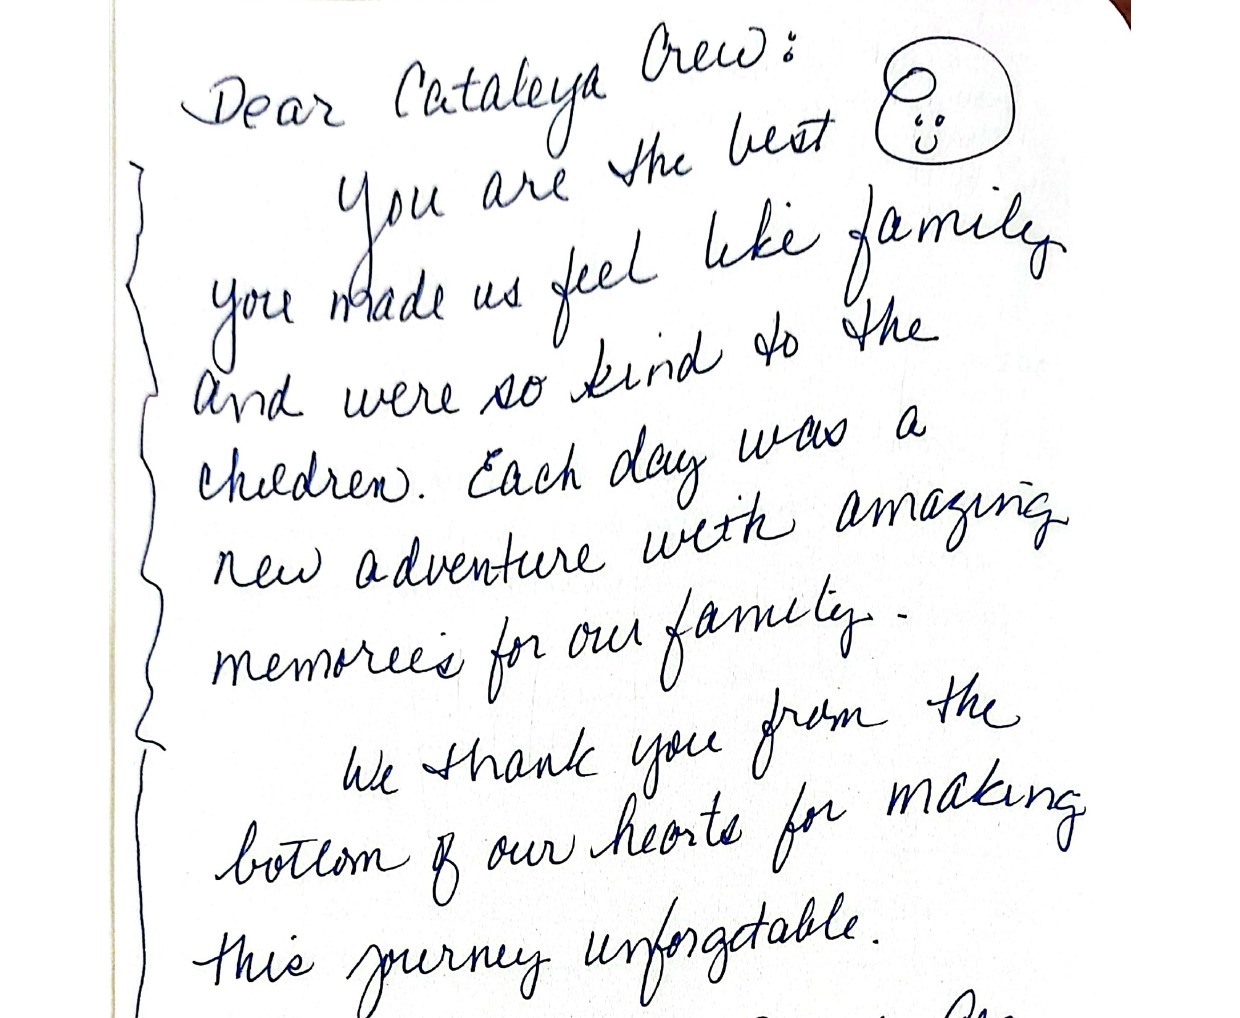 Dear Cataleya Crew:
You are the best
you made us feel like family
and were so kind to the
children. Each day was a
new adventure with amazing
memories for our family.
We thank you from the
bottom of our hearts for making
this journey unforgetable.